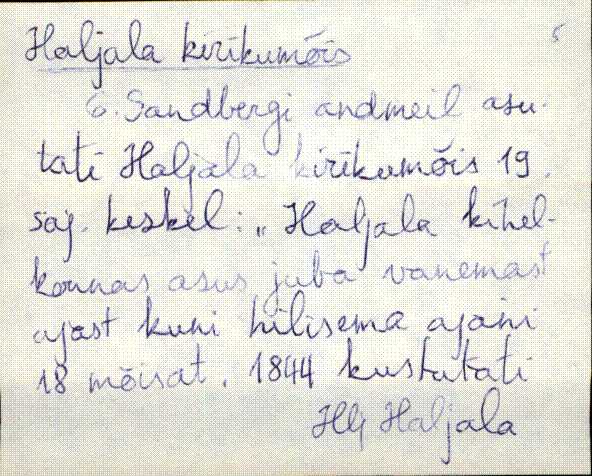 Haljala kirikumõis
5
G. Sandbergi andmeil asu-
tati Haljala kirikumõis 19.
saj. keskel: „Haljala kihel-
konnas asus juba vanemast
ajast kuni hilisema ajani
18 mõisat. 1844 kustutati
Haljala